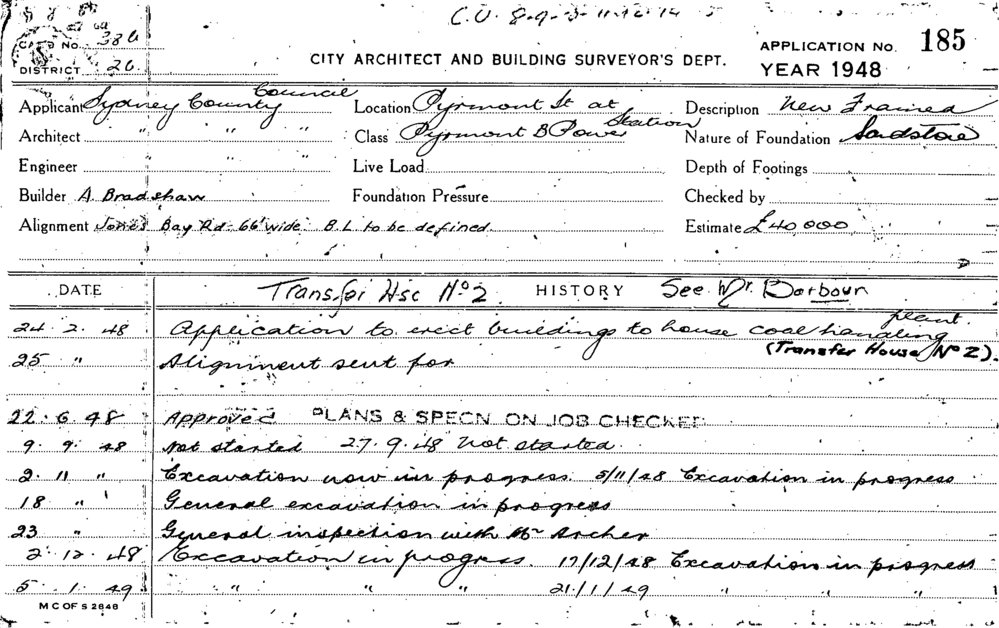 C.U. 8-9-3-11-12-14
CARD No. 386
DISTRICT 26
CITY ARCHITECT AND BUILDING SURVEYOR'S DEPT.
APPLICATION No. 185
YEAR 1948
Applicant Sydney County Council Location Pyrmont St at Description New Framed
Architect " " " Class Pyrmont B Power Station Nature of Foundation Sandstone
Engineer " " Live Load Depth of Footings
Builder A. Bradshaw Foundation Pressure Checked by
Alignment Jones Bay Rd 66' wide B.L to be defined. Estimate £40000
DATE Transfer Hse No 2 HISTORY See Mr. Barbour
24. 2. 48 Application to erect buildings to house coal handling plant.
(Transfer House No 2).
25 " Alignment sent for
22. 6. 48 Approved PLANS & SPECN ON JOB CHECKED
9. 9. 48 Not started 27.9.48 Not started.
2. 11 " Excavation now in progress. 5/11/48 Excavation in progress
18 " General excavation in progress
23 " General inspection with Mr Archer
2. 12. 48 Excavation in progress. 17/12/48 Excavation in progress
5. 1. 49 " " " 21/1/49 " " "
M C OF S 2848